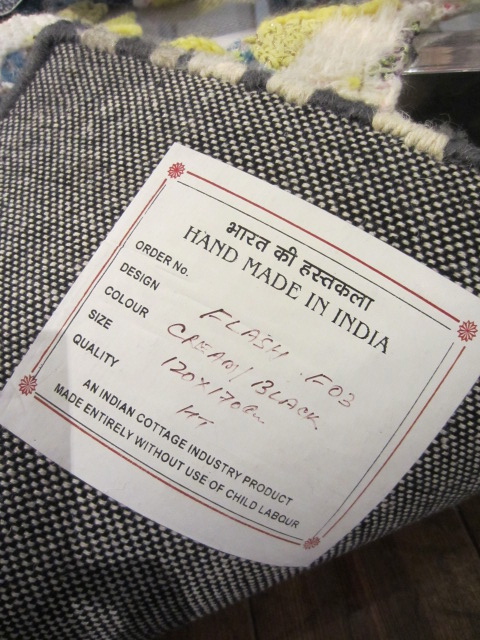 भारत की हस्तकला
HAND MADE IN INDIA
ORDER No.
DESIGN FLASH . F03
COLOUR CREAM/BLACK
SIZE 120X170Cm
QUALITY HT
AN INDIAN COTTAGE INDUSTRY PRODUCT
MADE ENTIRELY WITHOUT USE OF CHILD LABOUR